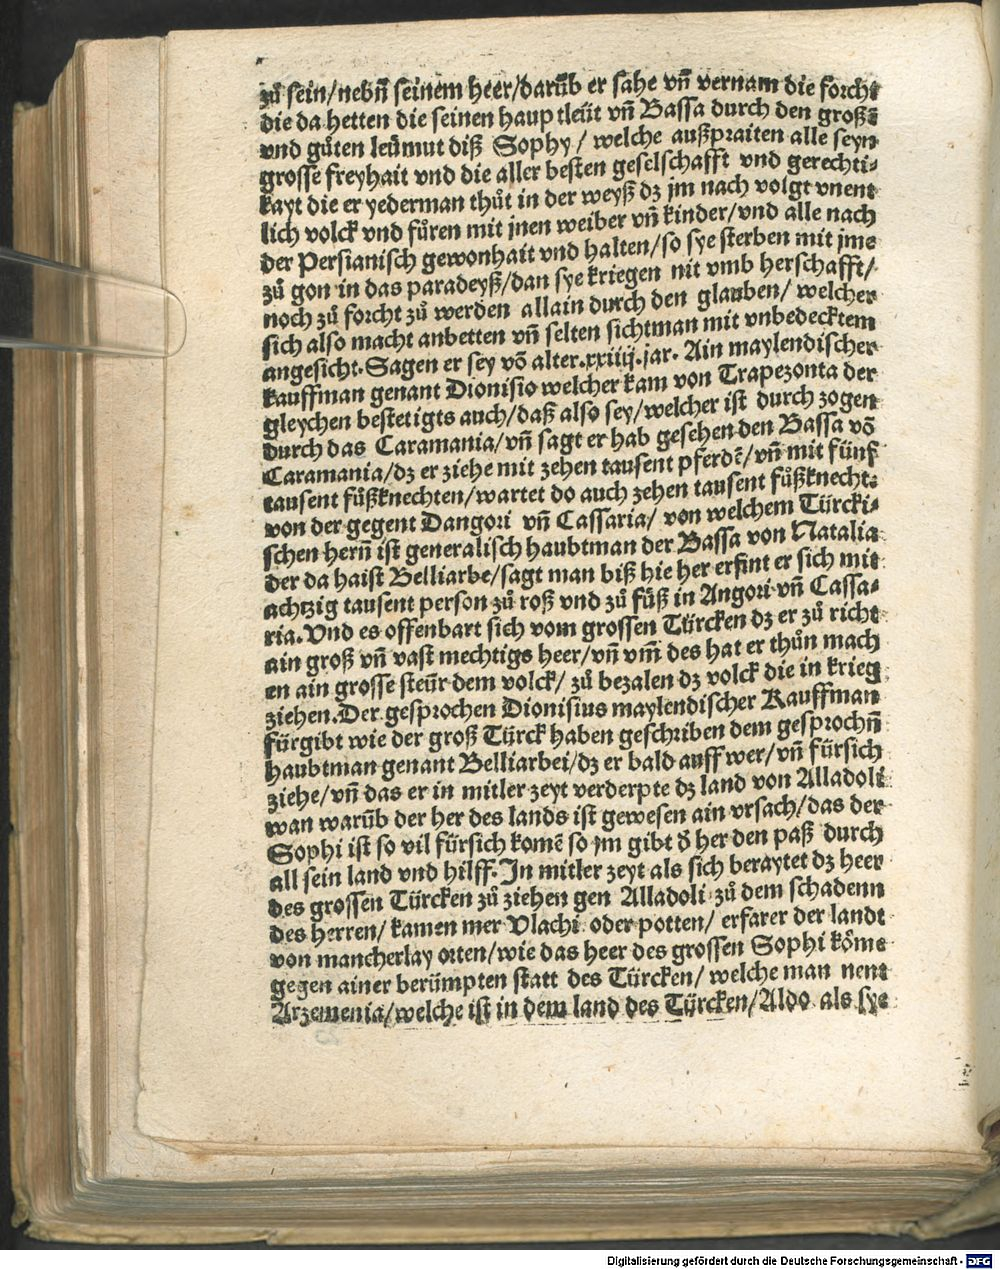 zů sein/nebñ seinem heer/darũb er sahe vñ vernam die forcht
die da hetten die seinen haup tleüt vñ Bassa durch den großẽ
vnd gůten leümut diß Sophy / welche außpraiten alle seyn
grosse freyhait vnd die aller besten geselschafft vnd gerechti⸗
kayt die er yederman thůt in der weyß dz jm nach volgt vnent
lich volck vnd fůren mit jnen weiber vñ kinder/vnd alle nach
der Persianisch gewonhait vnd halten/so sye sterben mit jme
zů gon in das paradeyß/dan sye kriegen nit vmb herschafft/
noch zů forcht zů werden allain durch den glauben/ welcher
sich also macht anbetten vñ selten sichtman mit vnbedecktem
angesicht. Sagen er sey võ alter.xxiiij.jar. Ain maylendischer
kauffman genant Dionisio welcher kam von Trapezonta der
gleychen bestetigts auch/daß also sey/welcher ist durch zogen
durch das Caramania/vñ sagt er hab gesehen den Bassa võ
Caramania/dz er ziehe mit zehen tausent pferdẽ/vñ mit fünf
tausent fůßknechten/wartet do auch zehen tausent fůßknecht
von der gegent Dangori vñ Cassaria/ von welchem Türcki⸗
schen herñ ist generalisch haubtman der Bassa von Natalia
der da haist Belliarbe/sagt man biß hie her erfint er sich mit
achtzig tausent person zů roß vnd zů fůß in Angori vñ Cassa⸗
ria. Vnd es offenbart sich vom grossen Türcken dz er zů richt
ain groß vñ vast mechtigs heer/vñ vm̃ des hat er thůn mach
en ain grosse steür dem volck/ zů bezalen dz volck die in krieg
ziehen. Der gesprochen Dionisius maylendischer Kauffman
fürgibt wie der groß Türck haben geschriben dem gesprochñ
haubtman genant Belliarbei/dz er bald auff wer/vñ fürsich
ziehe/vñ das er in mitler zeyt verderpte dz land von Alladoli
wan warũb der her des lands ist gewesen ain vrsach/das der
Sophi ist so vil fürsich komẽ so ym gibt đ her den paß durch
all sein land vnd hilff. In mitler zeyt als sich beraytet dz heer
des grossen Türcken zů ziehen gen Alladoli zů dem schadenn
des herren/ kamen mer Vlachi oder potten/ erfarer der landt
von mancherlay orten/wie das heer des grossen Sophi kõme
gegen ainer berümpten statt des Türcken/ welche man nent
Arzemenia/welche ist in dem land des Türcken/Aldo als sye
Digitalisierung gefördert durch die Deutsche Forschungsgemeinschaft - DFG